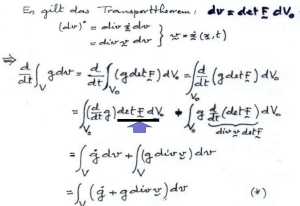 Es gilt das Transporttheorem: dv = det F dV₀
(dv)˙ = div ẋ dv
= div v dv } v = ẋ(x,t)
⇒ d/dt ∫_V g dv = d/dt ∫_{V₀} (g det F) dV₀ = ∫_{V₀} (d/dt (g det F)) dV₀
= ∫_{V₀} (d/dt g) det F dV₀ + ∫_{V₀} g d/dt (det F) dV₀
div v det F
= ∫_V ġ dv + ∫_V (g div v) dv
= ∫_V (ġ + g div v) dv (*)